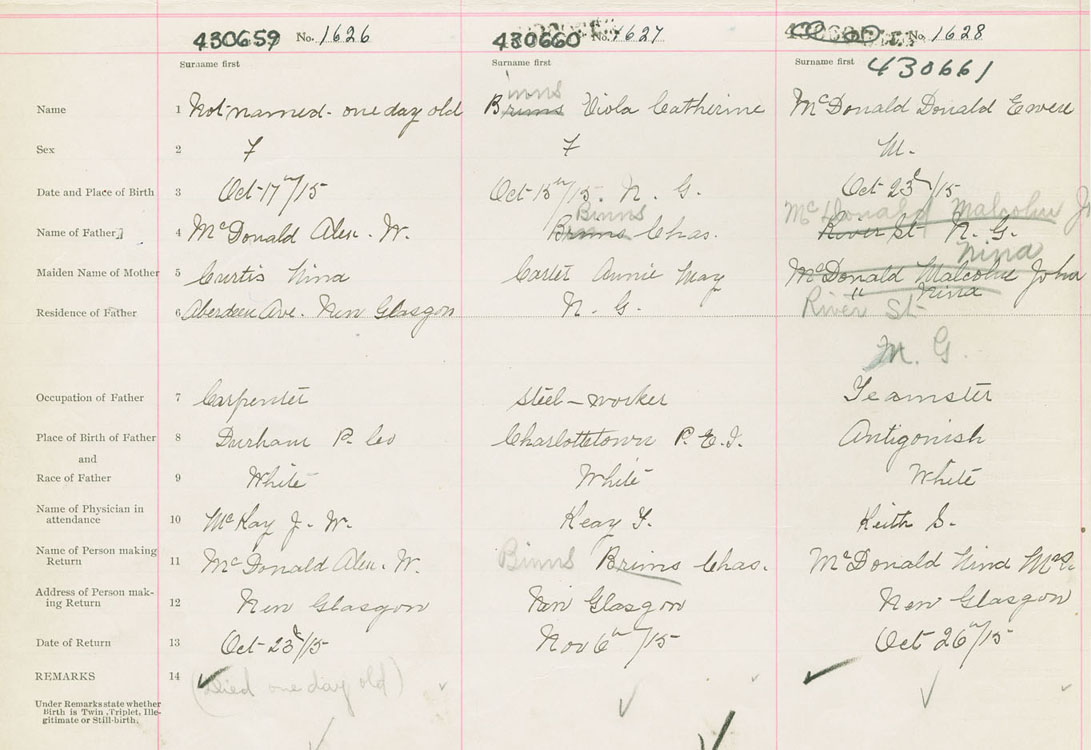 430659 No. 1626 430660 No. 1627 No. 1628
Surname first Surname first Surname first 430661
inns
Name 1 Not named - one day old Brims Viola Catherine McDonald Donald Ewere
Sex 2 F F M.
Date and Place of Birth 3 Oct 17th/15 Oct 15th/15. N. G. Oct 23d/15
Binns McDonald Malcolm J
Name of Father 4 McDonald Alex. W. Brims Chas. River St N. G.
Nina
Maiden Name of Mother 5 Curtis Nina Carter Annie May McDonald Malcolm John
" Nina
Residence of Father 6 Aberdeen Ave. New Glasgow N. G. River St
N. G.
Occupation of Father 7 Carpenter Steel-worker Teamster
Place of Birth of Father 8 Durham P. Co Charlottetown P. E. I. Antigonish
and
Race of Father 9 White White White
Name of Physician in
attendance 10 McKay J. W. Keay T. Keith S.
Name of Person making
Return 11 McDonald Alex. W. Binns Brims Chas. McDonald Nina Mrs.
Address of Person mak-
ing Return 12 New Glasgow New Glasgow New Glasgow
Date of Return 13 Oct 23d/15 Nov 6th/15 Oct 26th/15
REMARKS 14 (Died one day old)
Under Remarks state whether
Birth is Twin, Triplet, Ille-
gitimate or Still-birth.